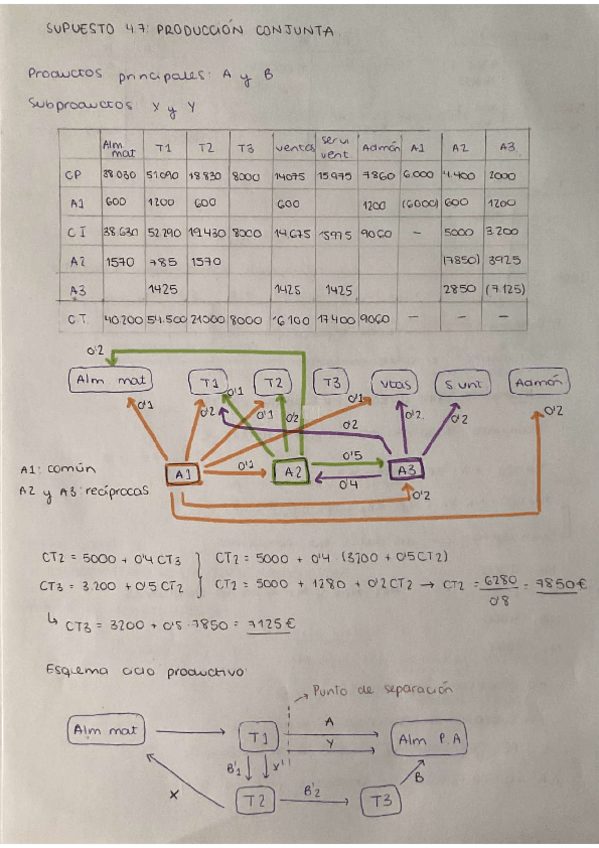 SUPUESTO 4.7: PRODUCCIÓN CONJUNTA
Productos principales: A y B
Subproductos: X y Y
Alm mat T1 T2 T3 ventas servi vent Admón A1 A2 A3
CP 38.030 51090 18.830 8000 14075 15.975 7860 6.000 4.400 2000
A1 600 1200 600 600 1200 (6000) 600 1200
CI 38.630 52.290 19.430 8000 14.675 15975 9060 - 5000 3.200
A2 1570 785 1570 (7850) 3925
A3 1425 1425 1425 2850 (7.125)
CT. 40.200 54.500 21000 8000 16.100 17.400 9060 - - -
0'2
Alm mat T1 T2 T3 vtas S.vnt Admón
0'1 0'2 0'1 0'1 0'2 0'1 0'2 0'2 0'2 0'2
A1 0'1 A2 0'5 A3
0'4
0'2
A1: común
A2 y A3: recíprocas
CT2 = 5000 + 0'4 CT3 } CT2 = 5000 + 0'4 (3200 + 0'5CT2)
CT3 = 3.200 + 0'5 CT2 } CT2 = 5000 + 1280 + 0'2CT2 → CT2 = 6280 / 0'8 = 7850€
↳ CT3 = 3200 + 0'5 · 7850 = 7125€
Esquema ciclo productivo:
→ Punto de separación
Alm mat T1 A Y Alm P.A
B'1 X'
X T2 B'2 T3 B